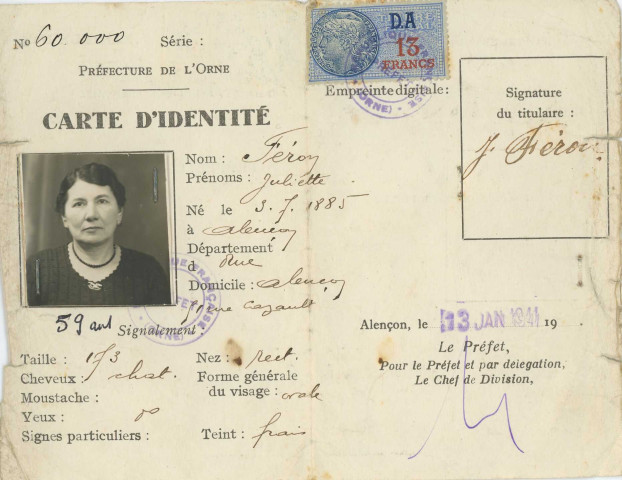 No 60.000 Série :
PRÉFECTURE DE L'ORNE
CARTE D'IDENTITÉ
Nom : Féron
Prénoms : Juliette
Né le 3.7.1885
à Alençon
Département
d Orne
Domicile : Alençon
rue Cazault
59 ans
Signalement :
Taille : 173
Cheveux : chat.
Moustache :
Yeux :
Signes particuliers :
Nez : rect.
Forme générale
du visage : ovale
Teint : frais
D.A
13
FRANCS
Empreinte digitale :
Signature
du titulaire :
J. Féron
Alençon, le 13 JAN 1941 19 .
Le Préfet,
Pour le Préfet et par délégation,
Le Chef de Division,